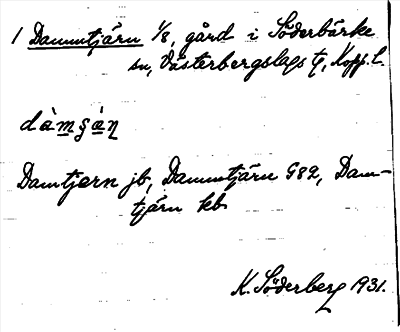 1 Dammtjärn 1/8, gård i Söderbärke
sn, Västerbergslags tg, Kopp. l.
dàmʂàn
Damtjern jb, Dammtjärn G82, Dam-
tjärn kb
K. Söderberg 1931.